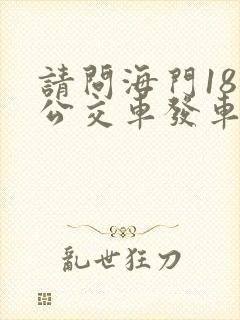 請問海門18
公交車發車
亂世狂刀